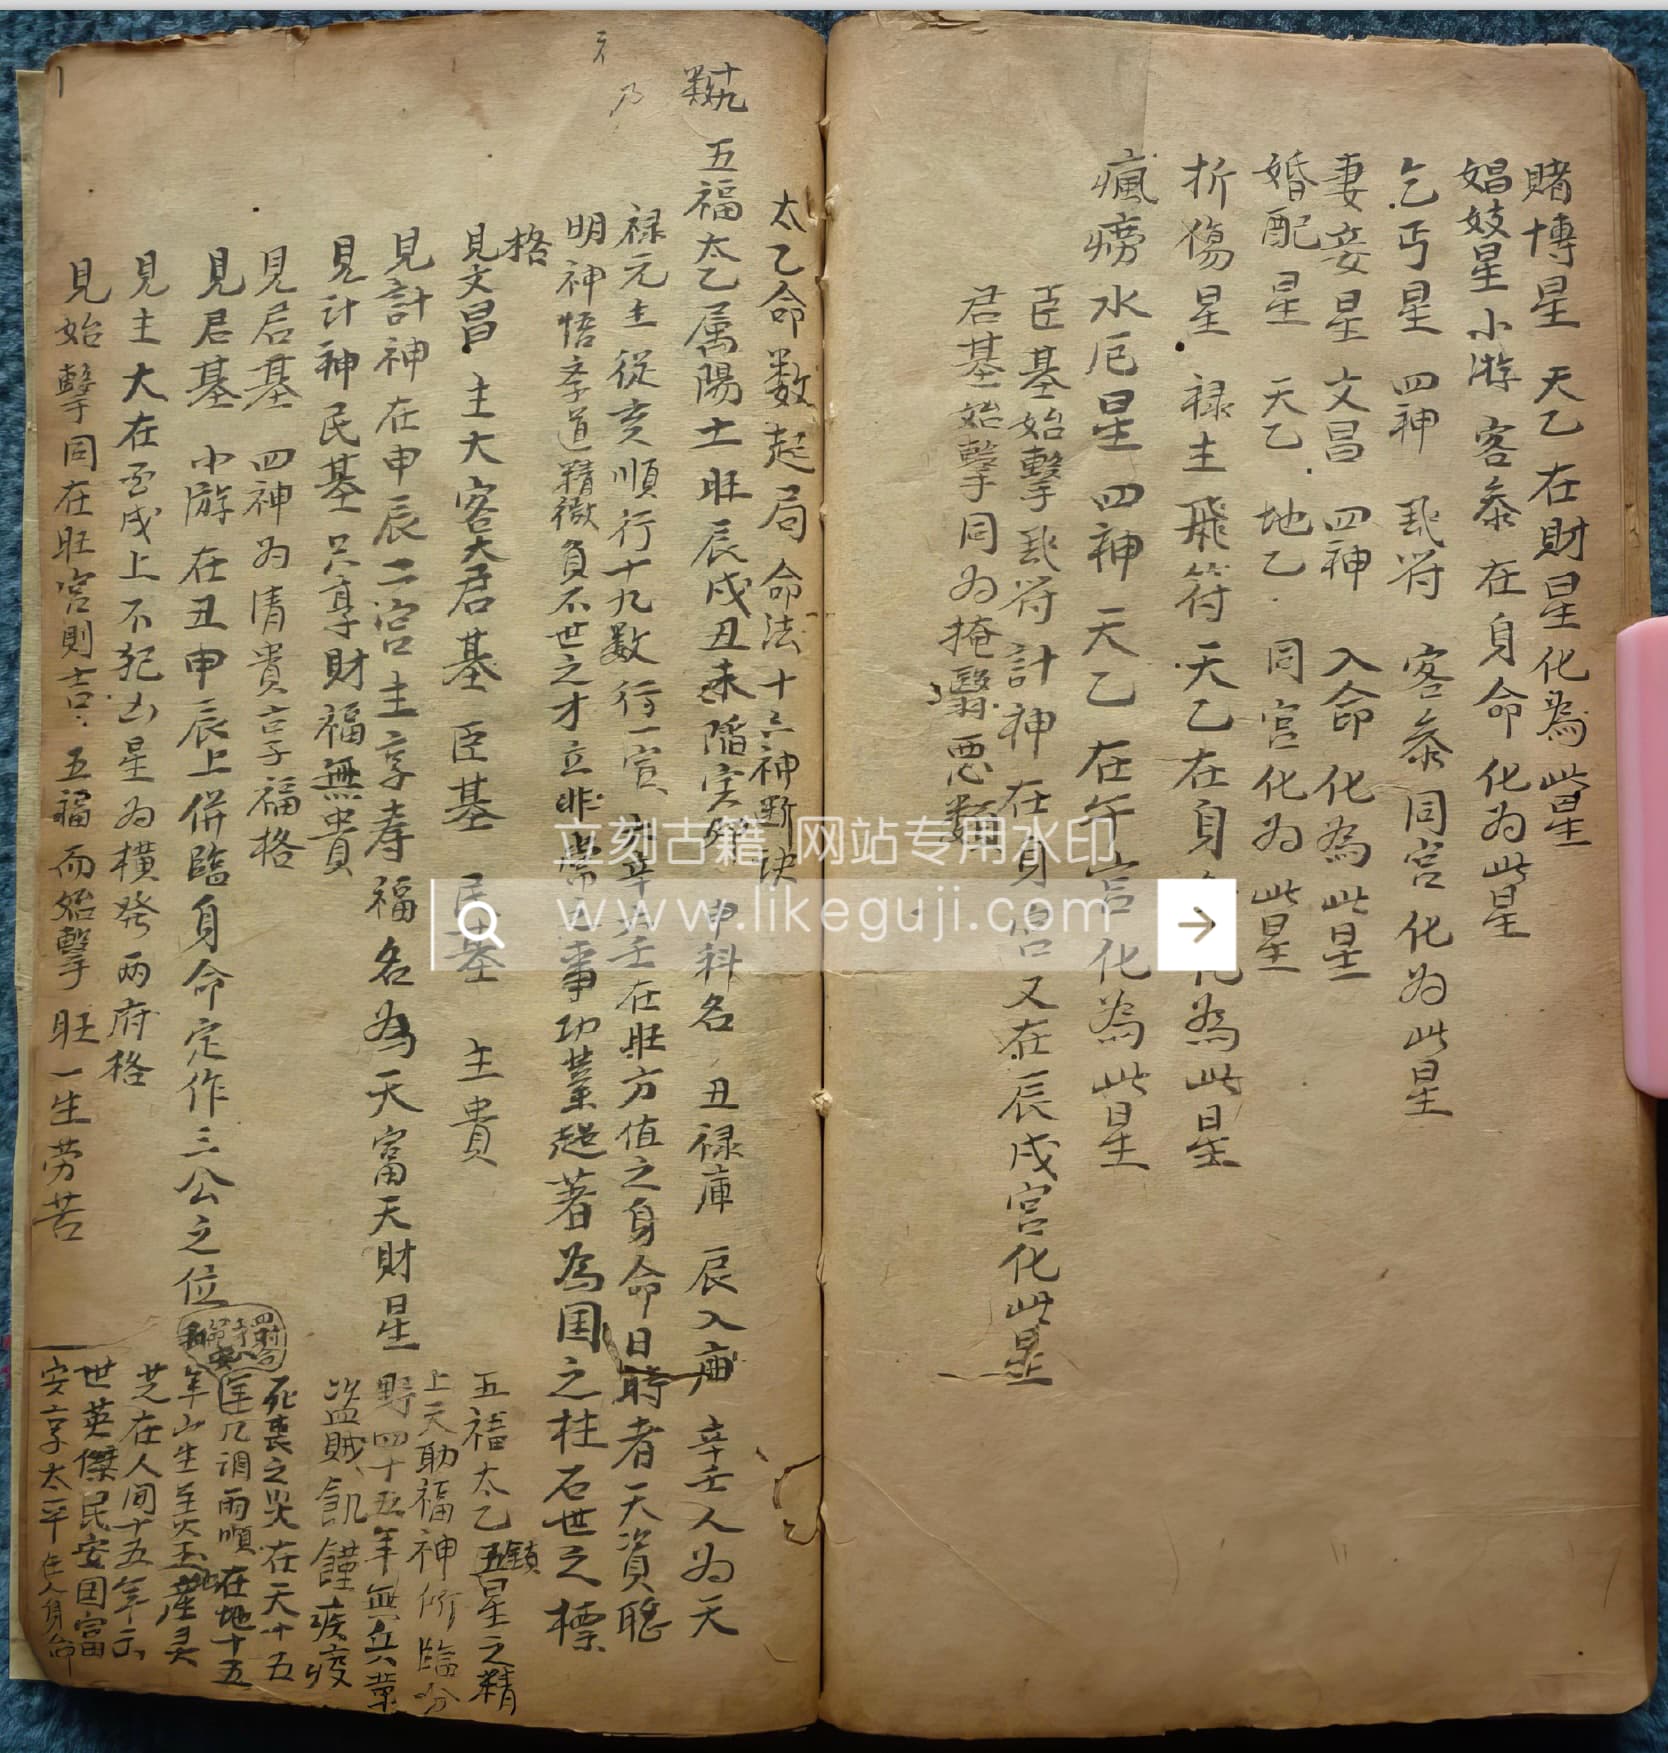 賭博星 天乙在財星化為此星
娼妓星小游 客叅在身命化为此星
乞丐星 四神 飛符 客叅同宮化为此星
妻妾星 文昌 四神 入命化為此星
婚配星 天乙 地乙 同宮化为此星
折傷星 禄主飛符天乙在身 化為此星
瘋癆水厄星四神天乙在午宮化為此星
臣基始擊飛符計神在身 又在辰戌宮化此星
君基始擊同为掩翳惡類
太乙命数起局命法十六神断诀
五福太乙属陽土旺辰戌丑未陷 申科名 丑禄庫 辰入庙 辛壬人为天
禄元主從亥順行十九数行一宮 在旺方值之身命日時者天資聰
明神悟孝道精微負不世之才立非常 事功業超著為国之柱石世之標
格
見文昌主大客大君基 臣基 民基 主貴
見計神在申辰二宮主享寿福名為天富天財星
見计神民基只享財福無貴
見君基 四神为清貴享福格
見君基 小游在丑申辰上併臨身命定作三公之位
見主大在 戌上不犯凶星为橫發两府格
見始擊同在旺宮則吉 五福而始擊旺一生劳苦
五福太乙鎮星之精
上天助福神所臨分
野四十五年無兵革
盜賊飢饉疾疫
死喪之災在天十五
年 调雨順在地十五
年 生 玉產
芝在人间十五年
世英傑民安国富
安享太平在人身命
立刻古籍 网站专用水印
www.likeguji.com